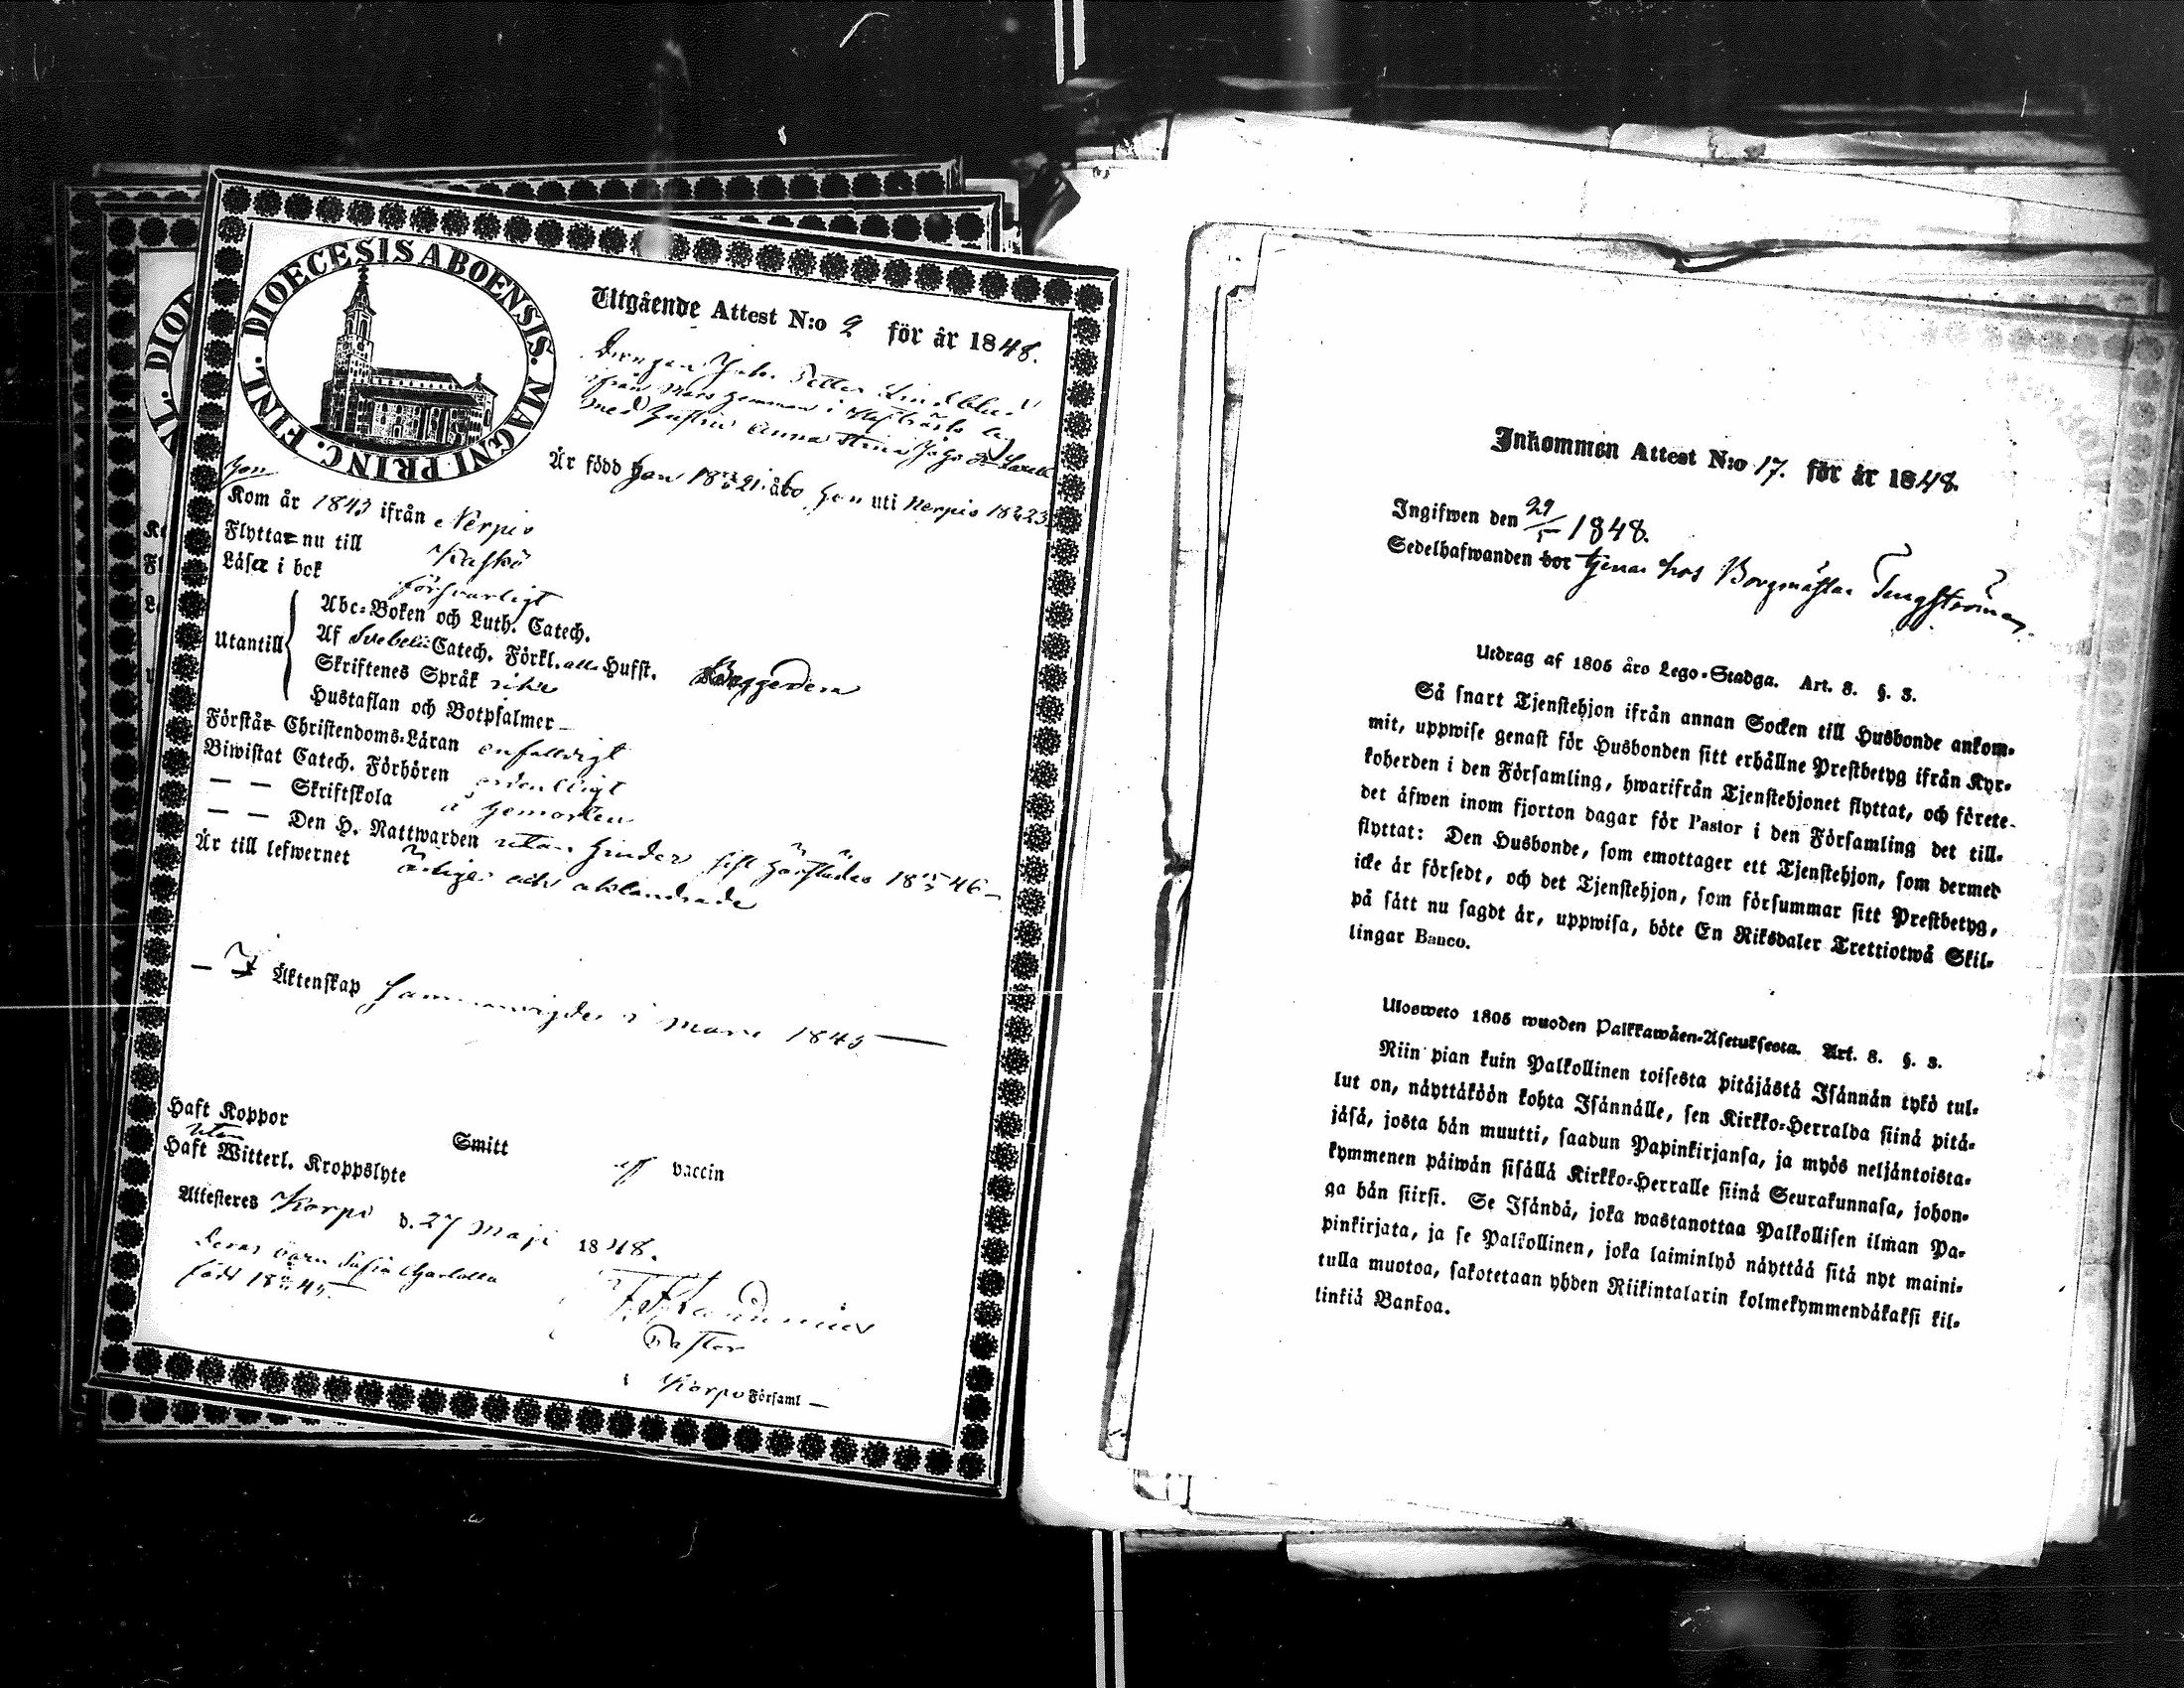 DIOECESIS ABOENSIS. MAGNI PRINC. FINL.
Utgående Attest N:o 2 för år 1848.
Drengen Johan Petter Lindblad
ifrån hemman i
med Hustrun Anna Stina
Är född han 18 21 i åbo hon uti Nerpis 18 23
hon
Kom år 1843 ifrån Nerpis
Flyttar nu till Kaskö
Läser i bok försvarligt
Utantill
Abc-Boken och Luth. Catech.
Af Svebeli: Catech. Förkl. alla Hufst.
Skriftenes Språk icke
Hustaflan och Botpsalmer –
Begge dera
Förstår Christendoms-Läran enfaldigt
Biwistat Catech. Förhören ordentligt
— — Skriftskola å hemorten
— — Den H. Nattwarden utan hinder sist härstädes 18 46 –
Är till lefwernet ärlige och oklandrade
— I Äktenskap Sammanvigde i mars 1845 —
Haft Koppor Smitt vaccin
utan
Haft Witterl. Kroppslyte
Attesteres Korpo d. 27 Maji 1848.
Deras barn Sofia Charlotta
född 18 45.
Pastor
i Korpo Församl —
Inkommen Attest N:o 17. för år 1848.
Ingifwen den 29/5 1848.
Sedelhafwanden bor tjenar hos Borgmästar Tengström
Utdrag af 1805 års Lego-Stadga. Art. 8. §. 3.
Så snart Tjenstehjon ifrån annan Socken till Husbonde ankom-
mit, uppwise genast för Husbonden sitt erhållne Prestbetyg ifrån Kyr-
koherden i den Församling, hwarifrån Tjenstehjonet flyttat, och förete-
det äfwen inom fjorton dagar för Pastor i den Församling det till-
flyttat: Den Husbonde, som emottager ett Tjenstehjon, som dermed
icke är försedt, och det Tjenstehjon, som försummar sitt Prestbetyg,
på sätt nu sagdt är, uppwisa, böte En Riksdaler Trettiotwå Skil-
lingar Banco.
Ulosweto 1805 wuoden Palkkawäen-Asetuksesta. Art. 8. §. 3.
Niin pian kuin Palkollinen toisesta pitäjästä Isännän tykö tul-
lut on, näyttäköön kohta Isännälle, sen Kirkko-Herralda siinä pitä-
jäsä, josta hän muutti, saadun Papinkirjansa, ja myös neljäntoista-
kymmenen päiwän sisällä Kirkko-Herralle siinä Seurakunnasa, johon-
ga hän siirsi. Se Isändä, joka wastanottaa Palkollisen ilman Pa-
pinkirjata, ja se Palkollinen, joka laiminlyö näyttää sitä nyt maini-
tulla muotoa, sakotetaan yhden Riikintalarin kolmekymmendäkaksi kil-
linkiä Bankoa.